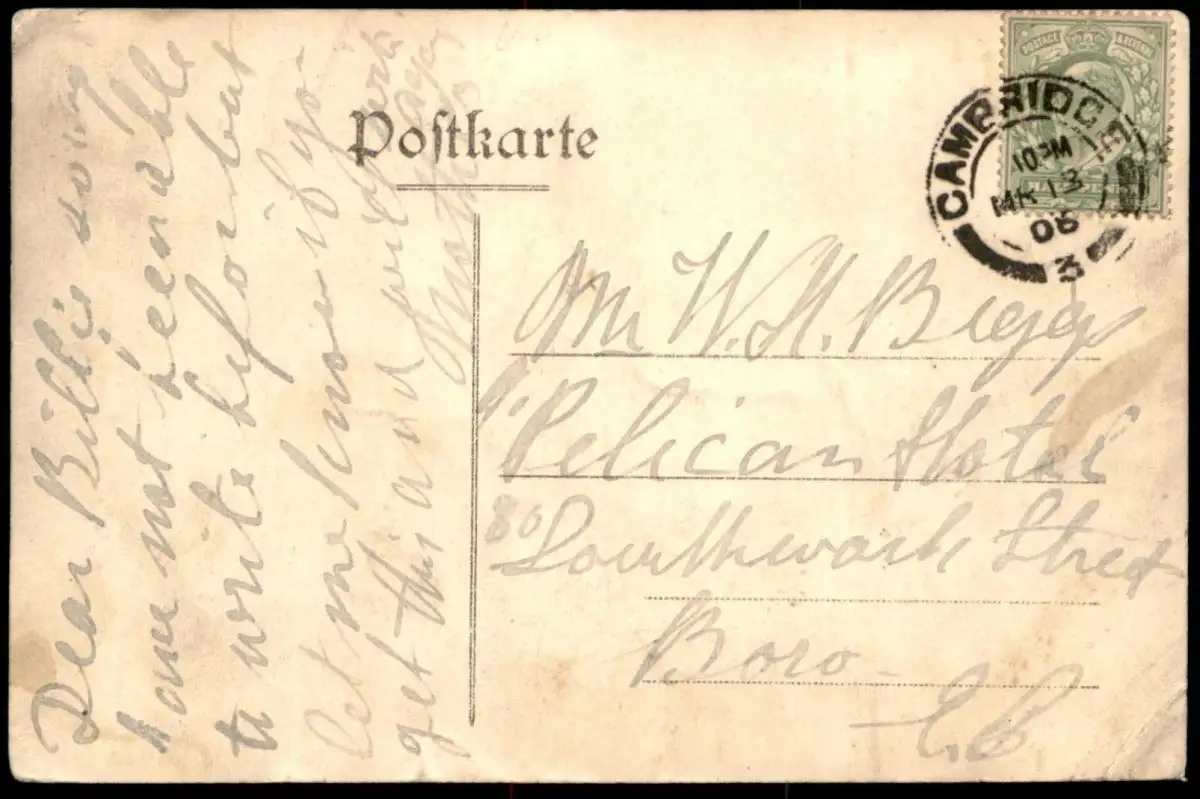 Postkarte
POSTAGE & REVENUE
CAMBRIDGE
10 PM
MR 13
06
3
Mr W. H. Biggs
"Pelican Hotel
80 Southwark Street
Boro
E C
Dear Billie sorry
have not been able
to write before but
let me know if you
get this and
Mother